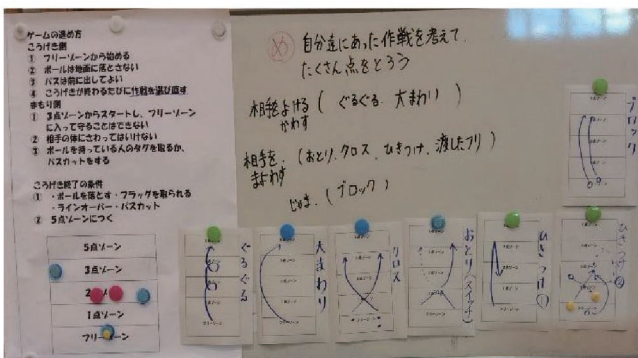 ゲームの進め方
こうげき側
① フリーゾーンから始める
② ボールは地面に落とさない
③ パスは前に出してよい
④ こうげきが終わるたびに作戦を選び直す
まもり側
① 3点ゾーンからスタートし、フリーゾーンに入って守ることはできない
② 相手の体にさわってはいけない
③ ボールを持っている人のタグを取るか、パスカットをする
こうげき終了の条件
① ・ボールを落とす・フラッグを取られる
・ラインオーバー・パスカット
② 5点ゾーンにつく
5点ゾーン
3点ゾーン
2
1点ゾーン
フリーゾーン
め 自分達にあった作戦を考えて、
たくさん点をとろう
相手をよける ( ぐるぐる、大まわり )
かわす
相手を、(おとり、クロス、ひきつけ、渡したフリ)
まよわす
じゃま、(ブロック)
ブロック
ぐるぐる
大まわり
クロス
おとり(スイッチ)
ひきつけ①
ひきつけ②